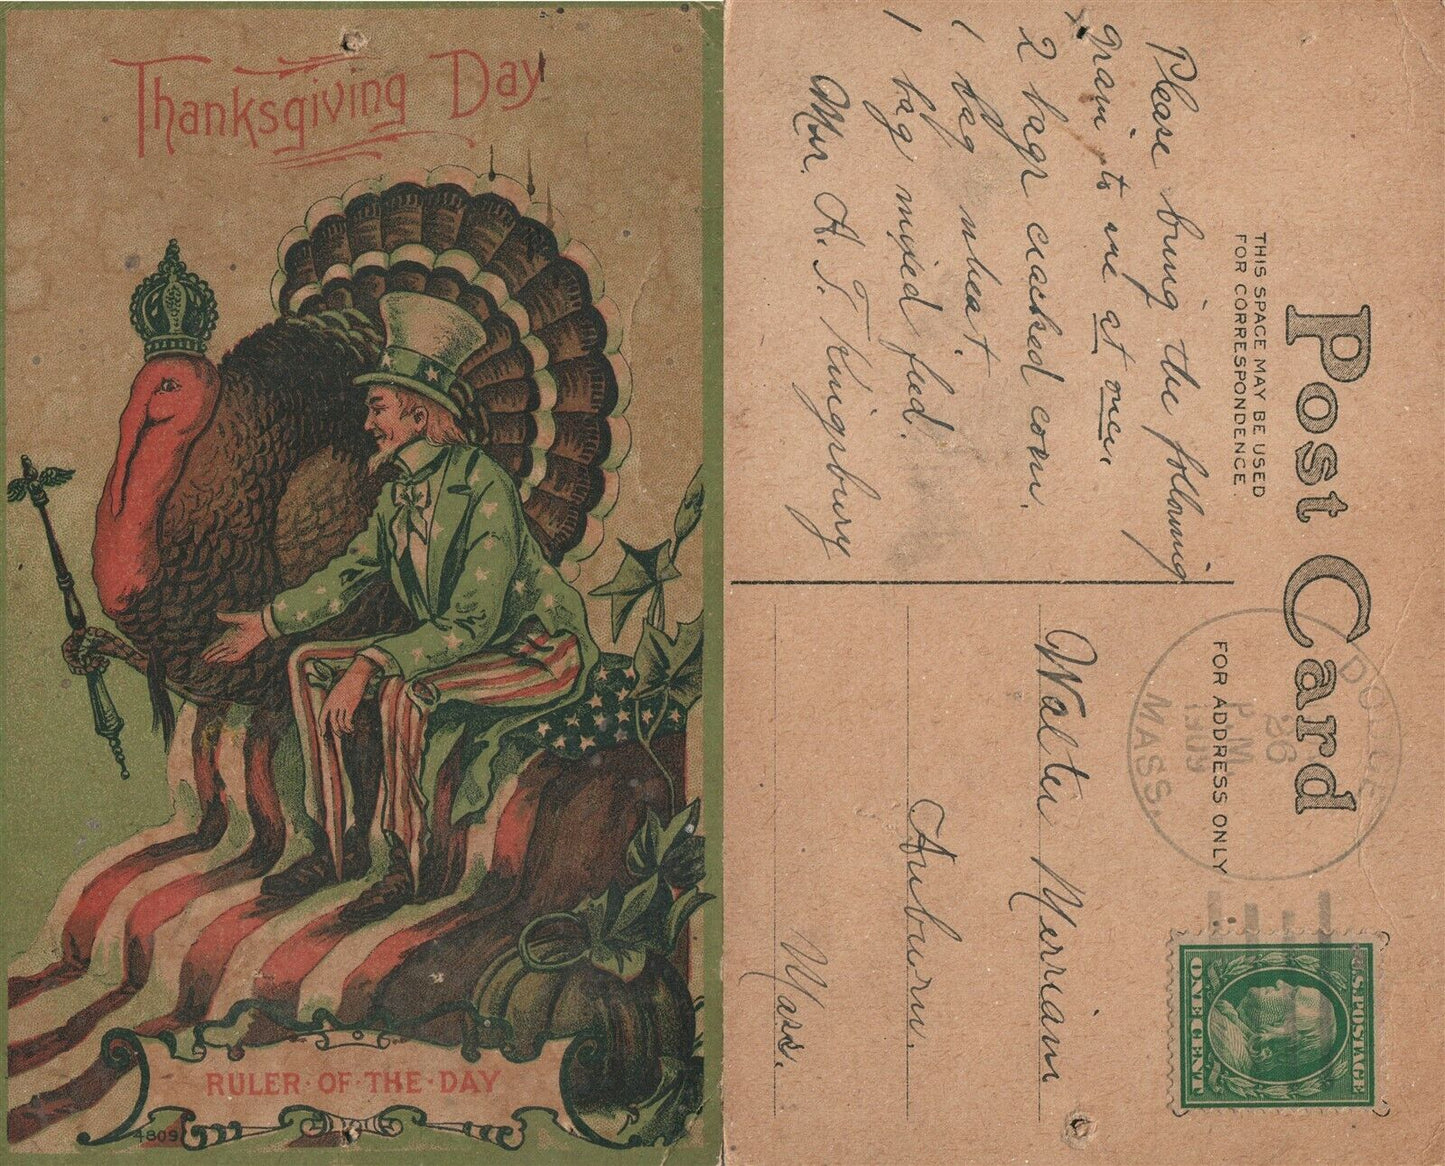 Thanksgiving Day
RULER·OF·THE·DAY
48091
Post Card
THIS SPACE MAY BE USED
FOR CORRESPONDENCE.
FOR ADDRESS ONLY
Please bring the following
grain to me at once.
2 bags cracked corn.
1 bag wheat.
1 bag mixed feed.
Mr. A. T. Kingsbury
DODGE
26
P.M.
1909
MASS.
U.S. POSTAGE
ONE CENT
Walter Merriam
Auburn.
Mass.